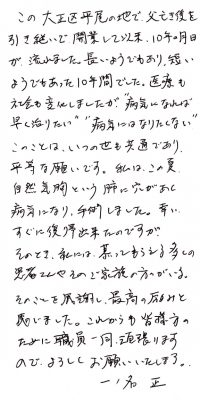 この大正区平尾の地で、父亡き後を
引き継いで開業して以来、10年の月日
が、流れました。長いようでもあり、短い
ようでもあった10年間でした。医療も
社会も変化しましたが"病気になれば
早く治りたい""病気にはなりたくない"
このことは、いつの世も共通であり、
平等な願いです。私は、この夏、
自然気胸という肺に穴があく
病気になり、手術しました。幸い、
すぐに復帰出来たのですが
そのとき、私には、慕ってもらえる多くの
患者さんやそのご家族の方がいる。
そのことを感謝し、最高の励みと
思いました。これからも皆様方の
ために職員一同、頑張ります
ので、よろしくお願いいたします。
一ノ名 正